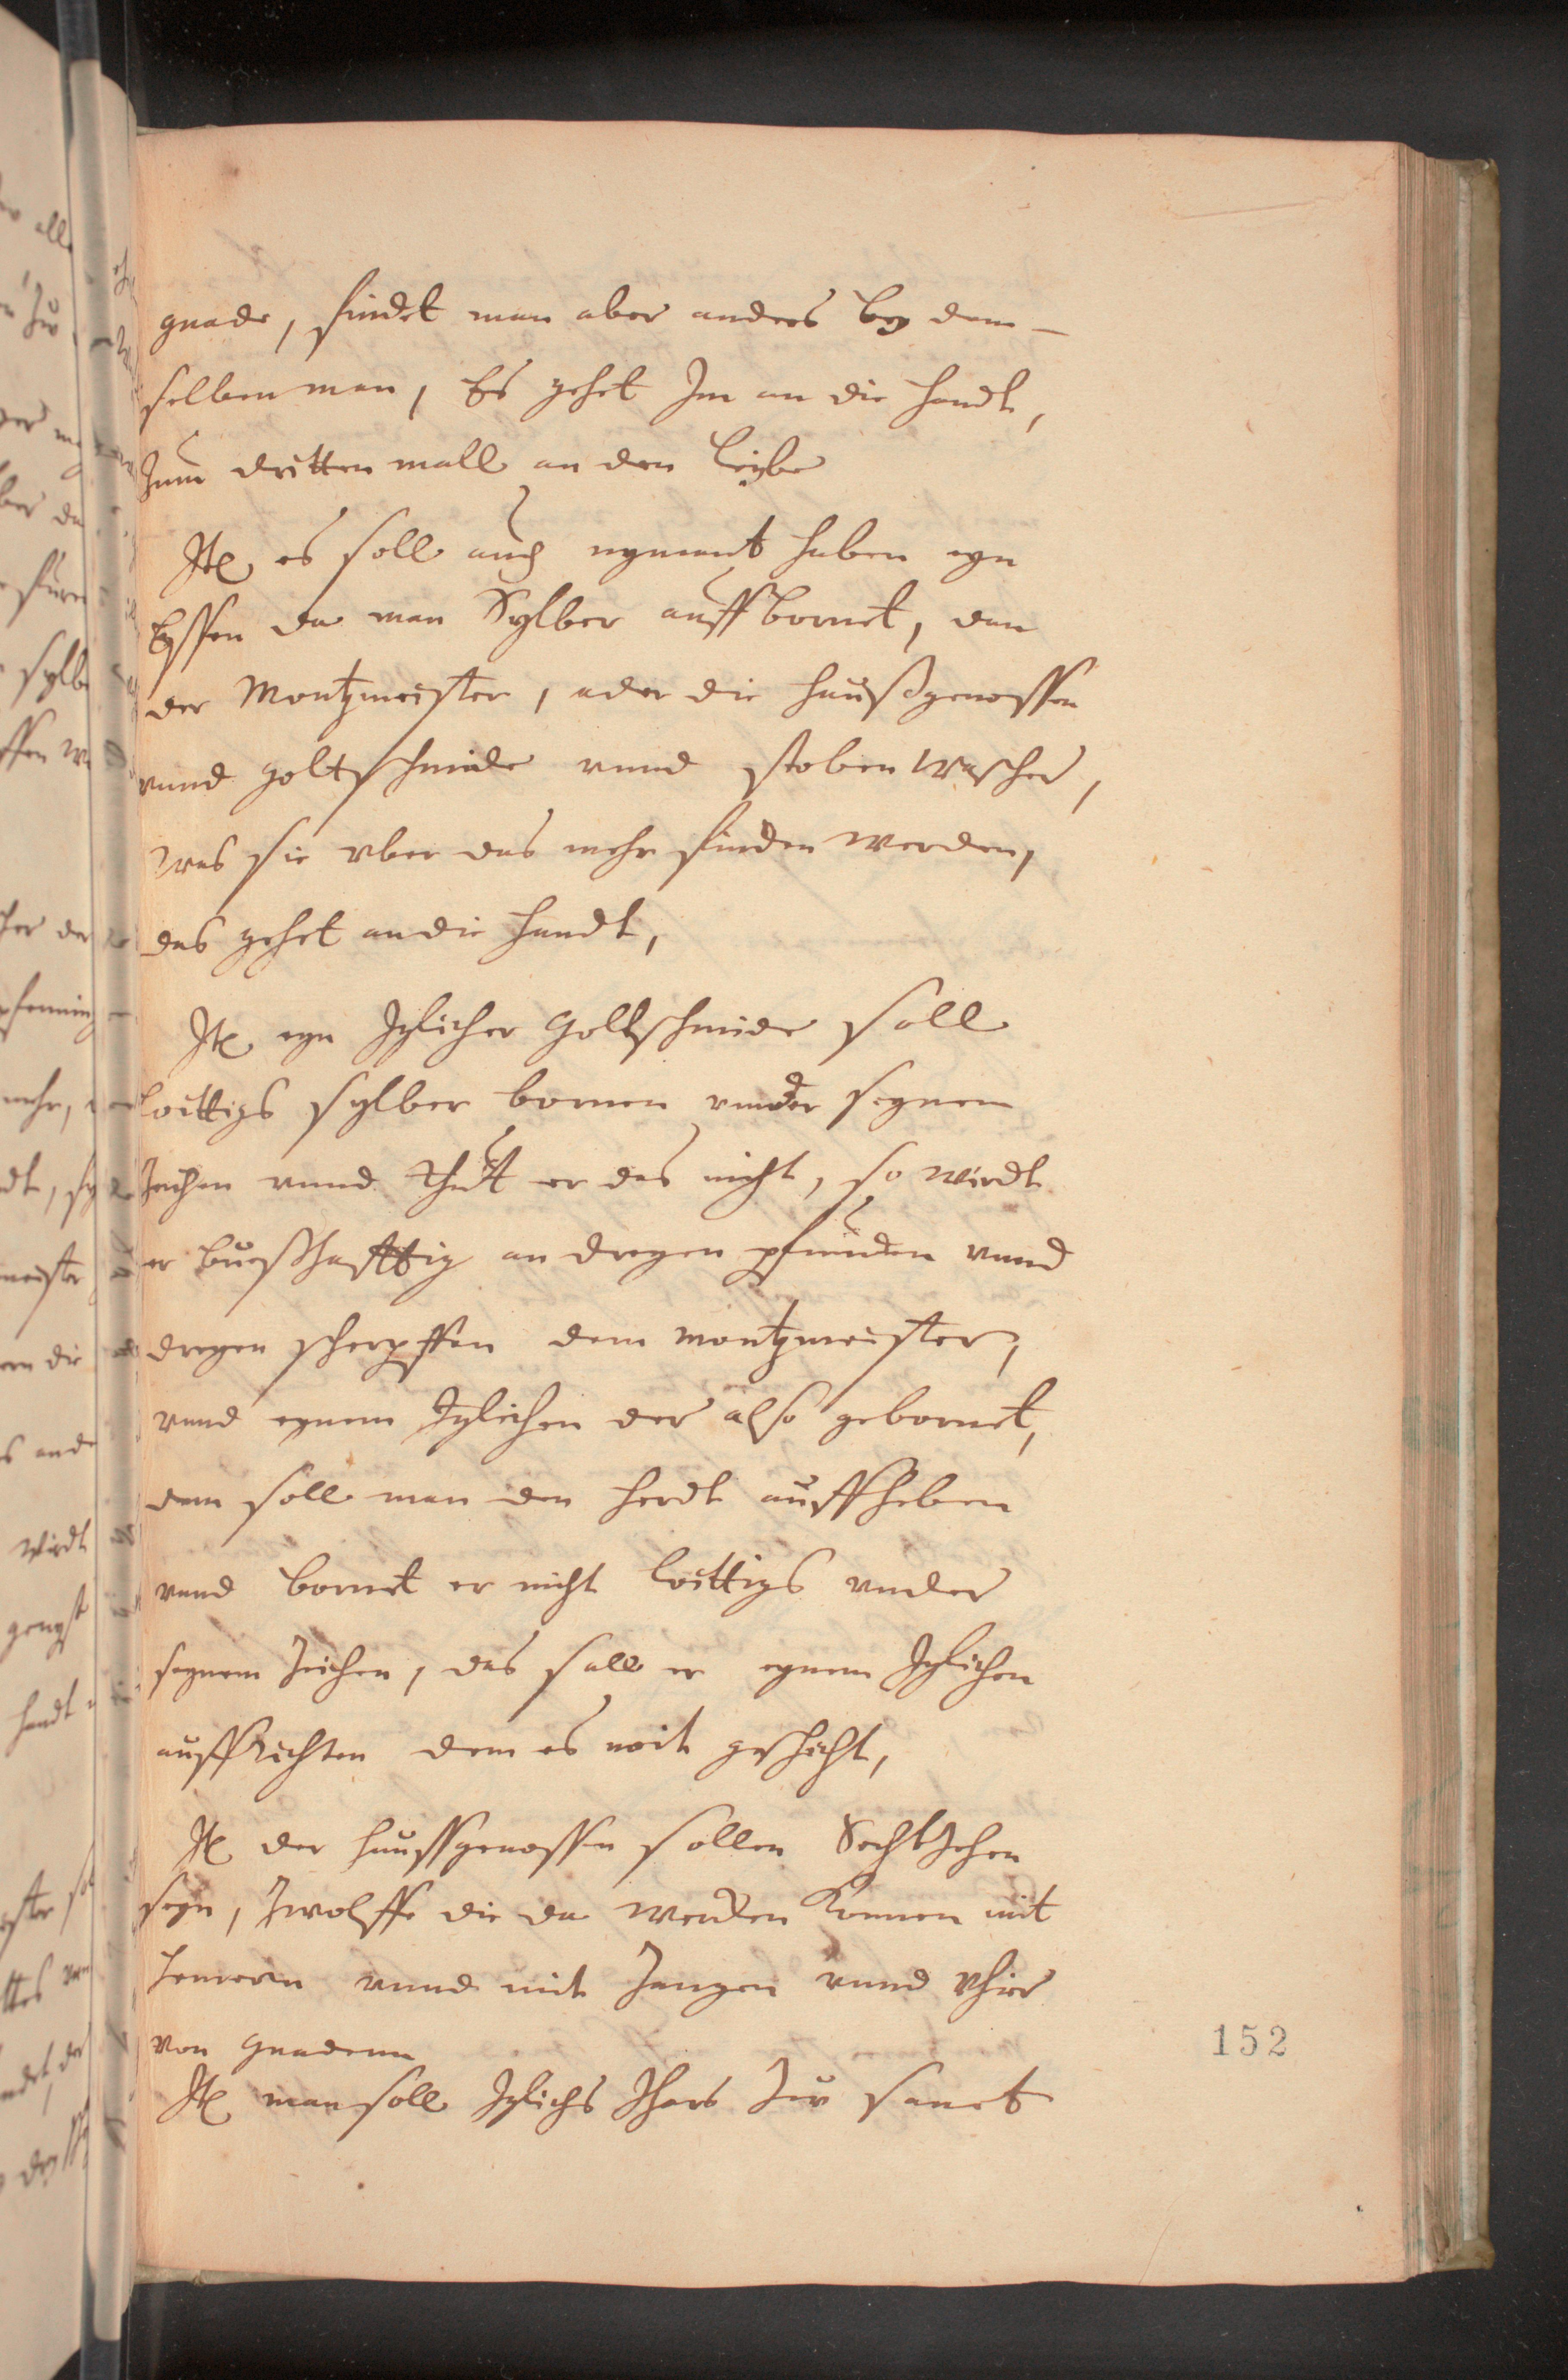 gnade, findet man aber anders bey dem-
selben man, Es gehet Im an die handt,
Zum dritten mall an den leybe
Itē es soll auch nymant haben eyn
Eyssen da man Sylber auff bornet, dan
der Montzmeister, ader die haußgenossen
vnnd goltschmide vnnd stoben wescher,
was sie vber das mehr finden werden,
das gehet an die handt,
Itē eyn Iglicher Goltschmide soll
loittigs sylber bornen vnnder seynem
Zeichen vnnd thut er das nicht, so wirdt
er bueßhafftig an dreyen pfunden vnnd
dreyen scherpffen dem montzmeister,
vnnd eynem Iglichen der also gebornet,
dem soll man den herdt auffheben
vnnd bornet er nicht loittigs vnder
seynem Zeichen, das sall er eynem Iglichen
auffrichten dem es noit geschicht,
Itē der haussgenossen sollen Sechtzehen
seyn, Zwolffe die da wercken konnen mit
hemern vnnd mit Zangen vnnd vhier
von gnadenn
Itē man soll Iglichs Jhars Zur sanct
152